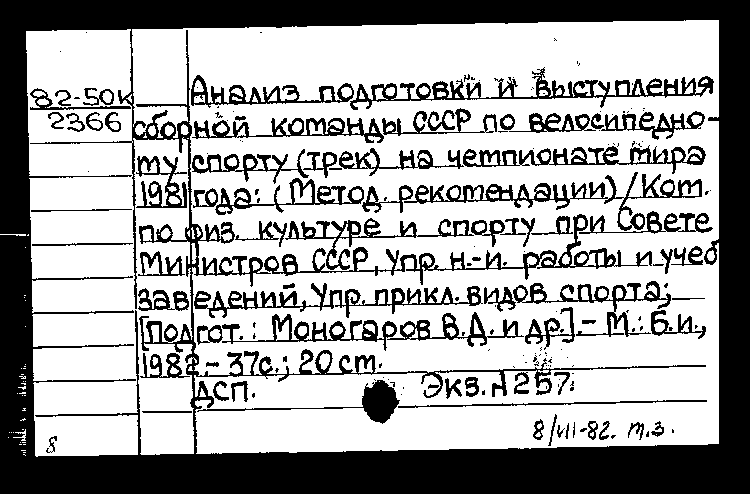 82-50К
2366
Анализ подготовки и выступления
сборной команды СССР по велосипедно-
му спорту (трек) на чемпионате мира
1981 года: (Метод. рекомендации) / Ком.
по физ. культуре и спорту при Совете
Министров СССР, Упр. н.-и. работы и учеб
заведений, Упр. прикл. видов спорта;
[Подгот.: Моногаров В.Д. и др.].- М.: Б.и.,
1982.- 37с.; 20 cm.
ДСП. Экз. № 257.
8/VII-82. т.з.
8